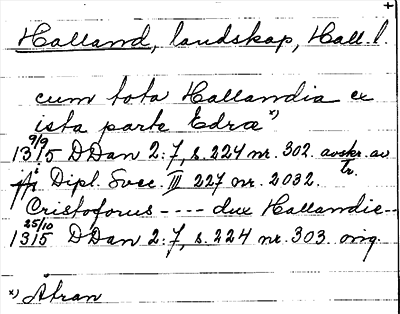 +
Halland, landskap, Hall. l.
cum tota Hallandia ex
ista parte Edræ x)
9/9
1315 DDan 2:7, s. 224 nr. 302. avskr. av
Tr. i Dipl. Svec. III 227 nr. 2032.
Cristoforus ---- dux Hallandie--
25/10
1315 DDan 2:7, s. 224 nr. 303. orig.
x) Ätran